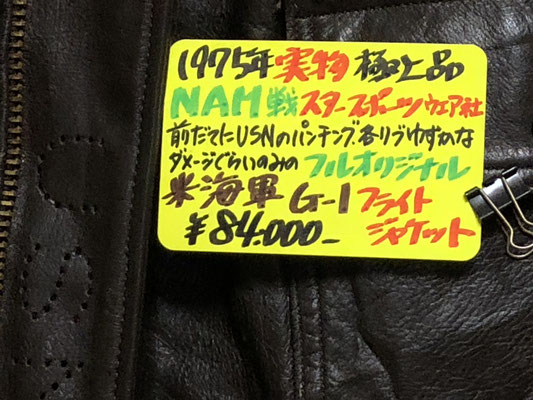 1975年 実物 極上品
NAM戦 スタースポーツウェア社
前だてにUSNのパンチング、各リブわずかな
ダメージぐらいのみの フルオリジナル
米海軍 G-1 フライト
ジャケット
¥84.000-
USN